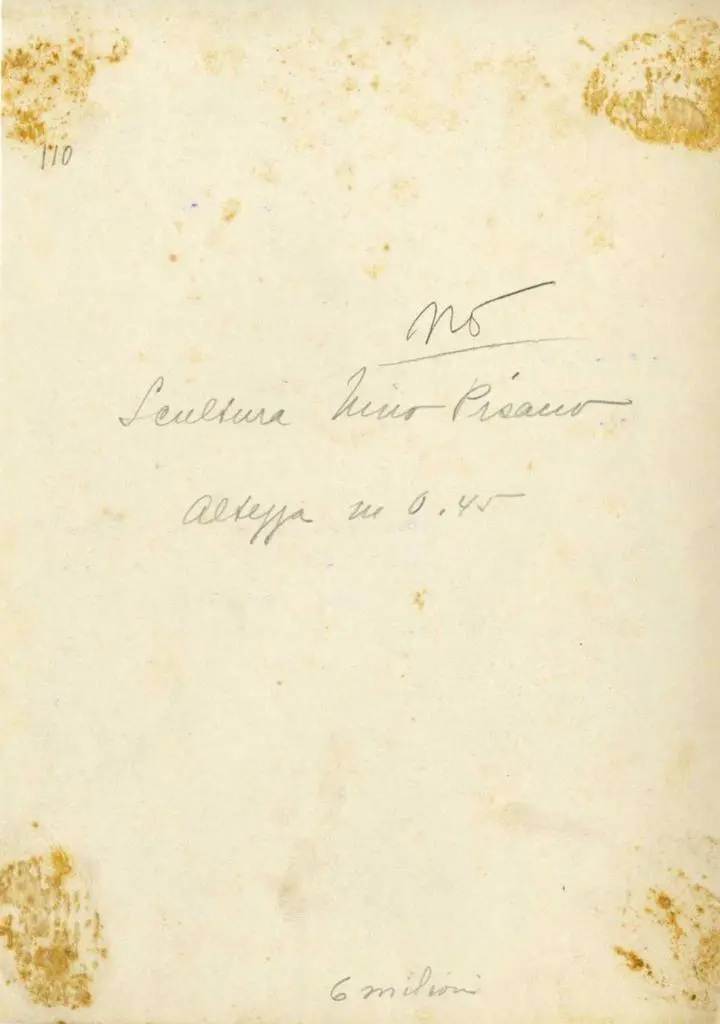 110
no
Scultura Nino Pisano
Altezza m 0.45
6 milioni